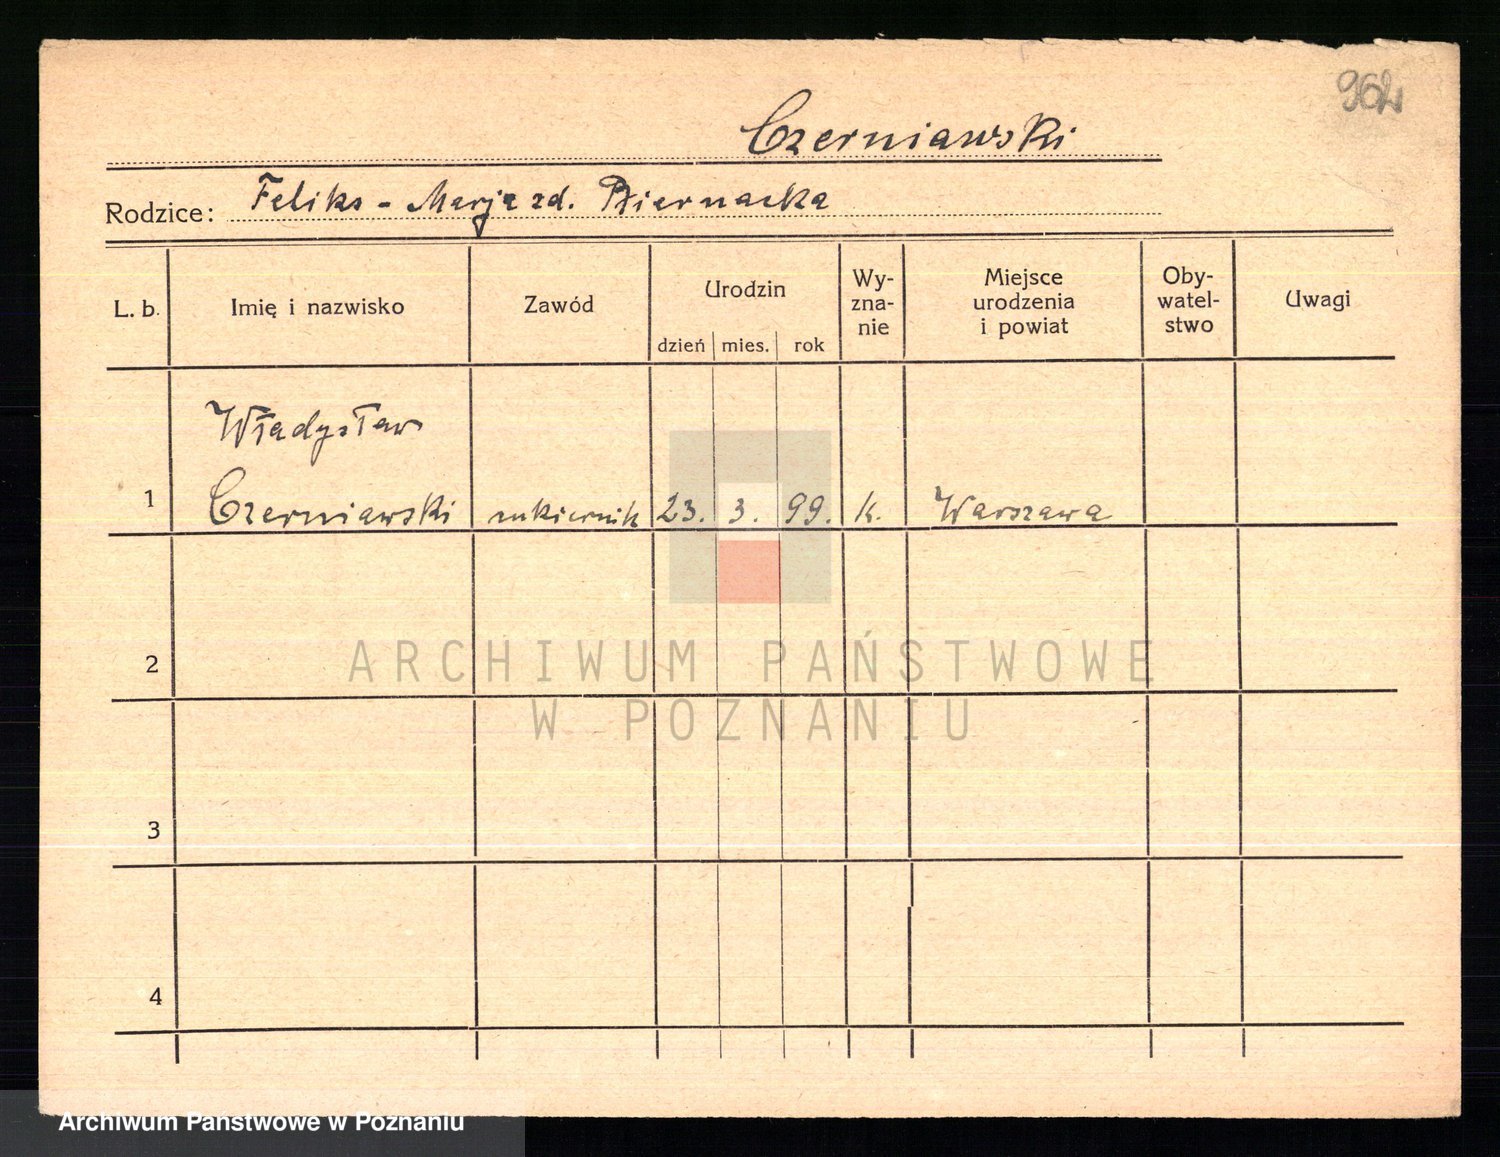 962
Czerniawski
Rodzice: Feliks - Marja zd. Biernacka
L. b. Imię i nazwisko Zawód Urodzin dzień mies. rok Wy-zna-nie Miejsce urodzenia i powiat Oby-watel-stwo Uwagi
Władysław
1 Czerniawski cukiernik 23. 3. 99. k. Warszawa
2
ARCHIWUM PAŃSTWOWE
W POZNANIU
3
4
Archiwum Państwowe w Poznaniu